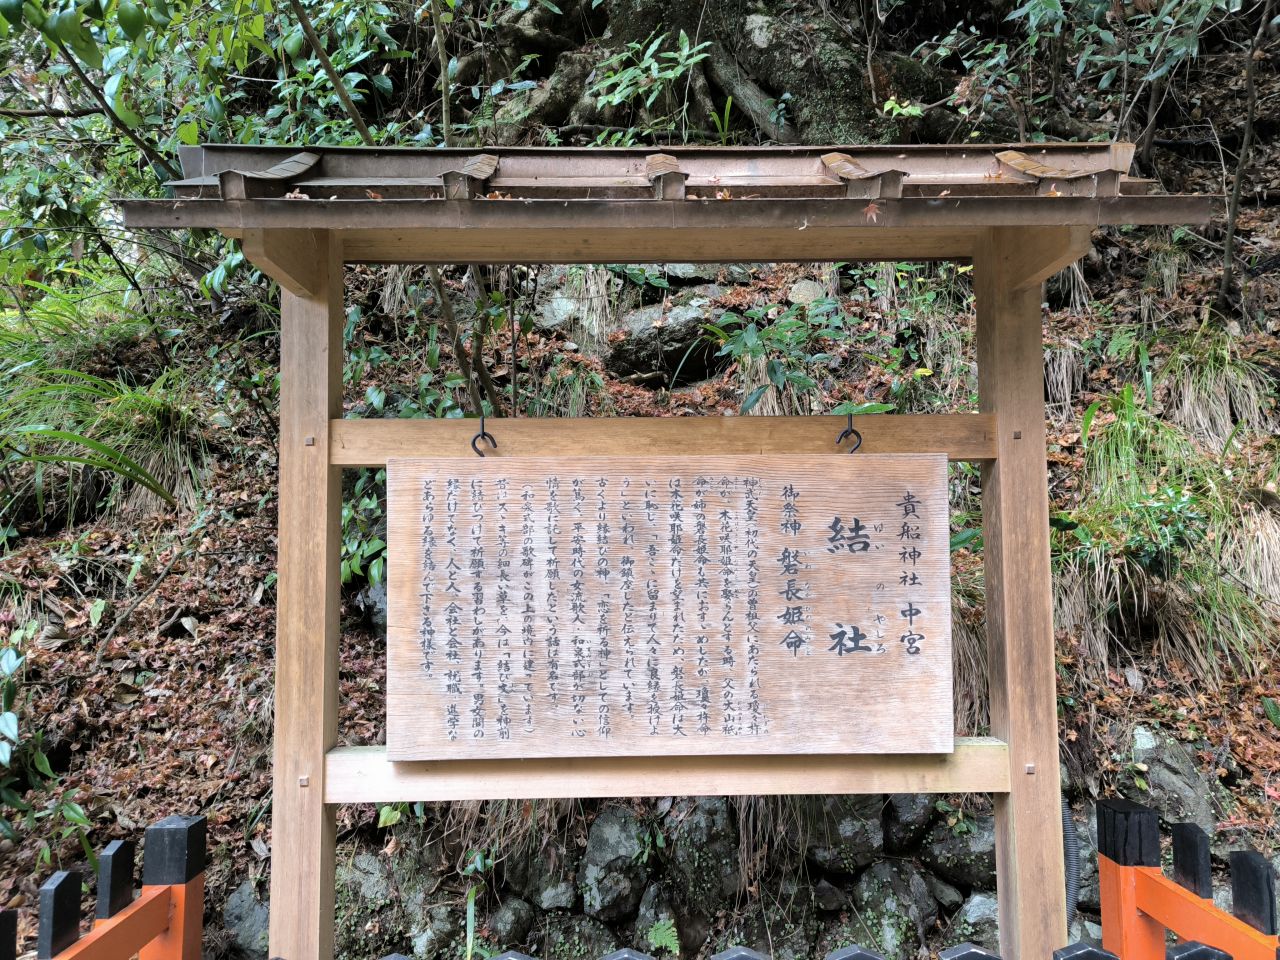 貴船神社中宮
結社
けいのやしろ
御祭神 磐長姫命
いわながひめのみこと
神武天皇(初代の天皇)の曽祖父にあたられる瓊々杵
命が、木花咲耶姫命を娶らんとする時、父の大山祇
命が姉の磐長姫命も共におすゝめしたが、瓊々杵命
は木花咲耶姫命だけを望まれたため、磐長姫命は大
いに恥じ、「吾ここに留まりて人々に良縁を授けよ
う」といわれ、御鎮座したと伝えられています。
古くより縁結びの神、「恋を祈る神」としての信仰
が篤く、平安時代の女流歌人、和泉式部が切ない心
情を歌に託して祈願したという話は有名です。
(和泉式部の歌碑がこの上の境内に建っています)
昔はススキ等の細長い草を、今は「結び文」を神前
に結びつけて祈願する習わしがあります。男女間の
縁だけでなく、人と人、会社と会社、就職、進学な
どあらゆる縁を結んで下さる神様です。